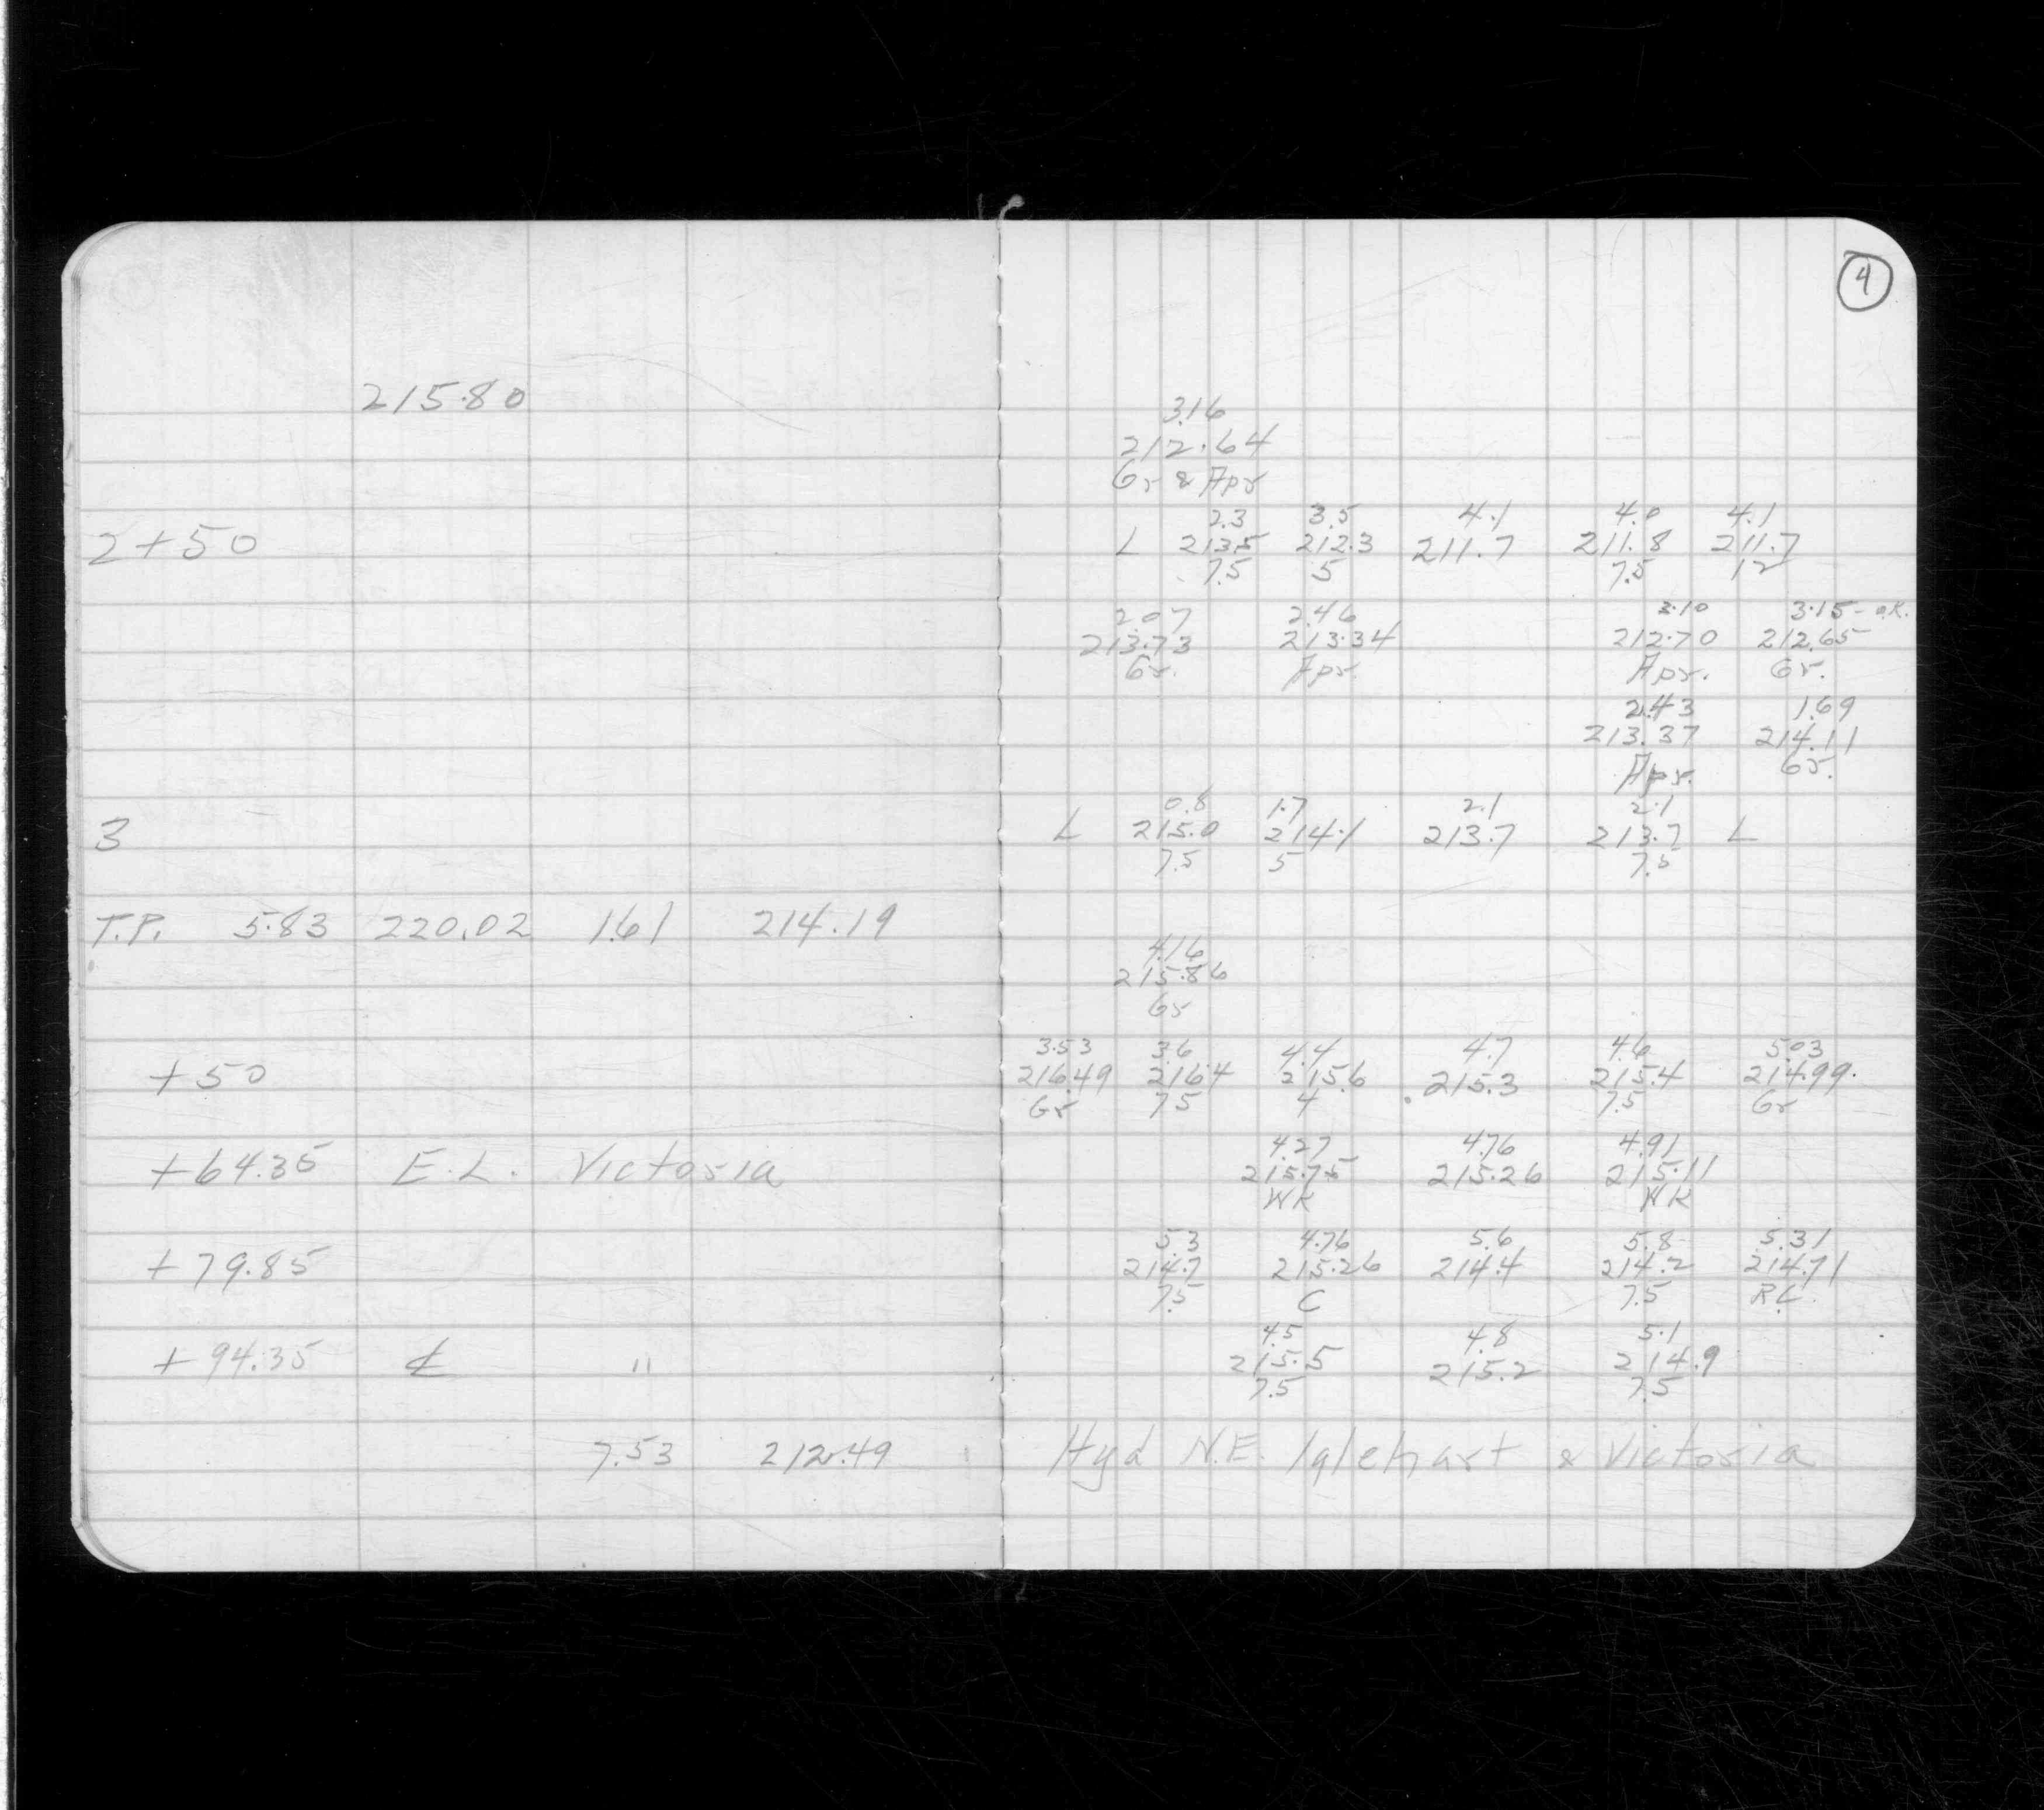 4
215.80
3.16
212.64
Gr & Apr
2.3 3.5 4.1 4.0 4.1
2+50 L 213.5 212.3 211.7 211.8 211.7
7.5 5 7.5 12
2.07 2.46 3.10 3.15 - O.K.
213.73 213.34 212.70 212.65
Gr. Apr. Apr. Gr.
2.43 1.69
213.37 214.11
Apr. Gr.
0.8 1.7 2.1 2.1
3 L 215.0 214.1 213.7 213.7 L
7.5 5 7.5
T.P. 5.83 220.02 1.61 214.19
4.16
215.86
Gr
3.53 3.6 4.4 4.7 4.6 5.03
+50 216.49 216.4 215.6 215.3 215.4 214.99
Gr 7.5 4 7.5 Gr
4.27 4.76 4.91
+64.35 E.L. Victoria 215.75 215.26 215.11
WK WK
5.3 4.76 5.6 5.8 5.31
+79.85 214.7 215.26 214.4 214.2 214.71
7.5 C 7.5 R.C.
4.5 4.8 5.1
+94.35 ℄ " 215.5 215.2 214.9
7.5 7.5
7.53 212.49 Hyd N.E. Iglehart & Victoria